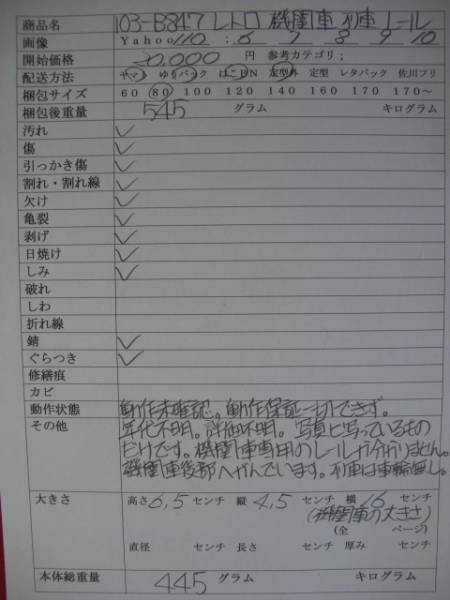 商品名 103-B847 レトロ 機関車 列車 レール
画像 Yahoo 110 ; 6 7 8 9 10
開始価格 20,000 円 参考カテゴリ;
配送方法 ヤマ ゆうパック はこBN 定型外 定型 レタパック 佐川フリ
梱包サイズ 60 80 100 120 140 160 170 170～
梱包後重量 545 グラム キログラム
汚れ ✓
傷 ✓
引っかき傷 ✓
割れ・割れ線 ✓
欠け ✓
亀裂 ✓
剥げ ✓
日焼け ✓
しみ ✓
破れ
しわ
折れ線
錆 ✓
ぐらつき ✓
修繕痕
カビ
動作状態 動作未確認。動作保証一切できず。
その他 年代不明。詳細不明。写真に写っているもの
だけです。機関車専用のレールか分かりません。
機関車後部へがんでいます。列車は車輪無し。
大きさ 高さ 6,5 センチ 縦 4,5 センチ 横 16 センチ
(機関車の大きさ)
(全 ページ)
直径 センチ 長さ センチ 厚み センチ
本体総重量 445 グラム キログラム